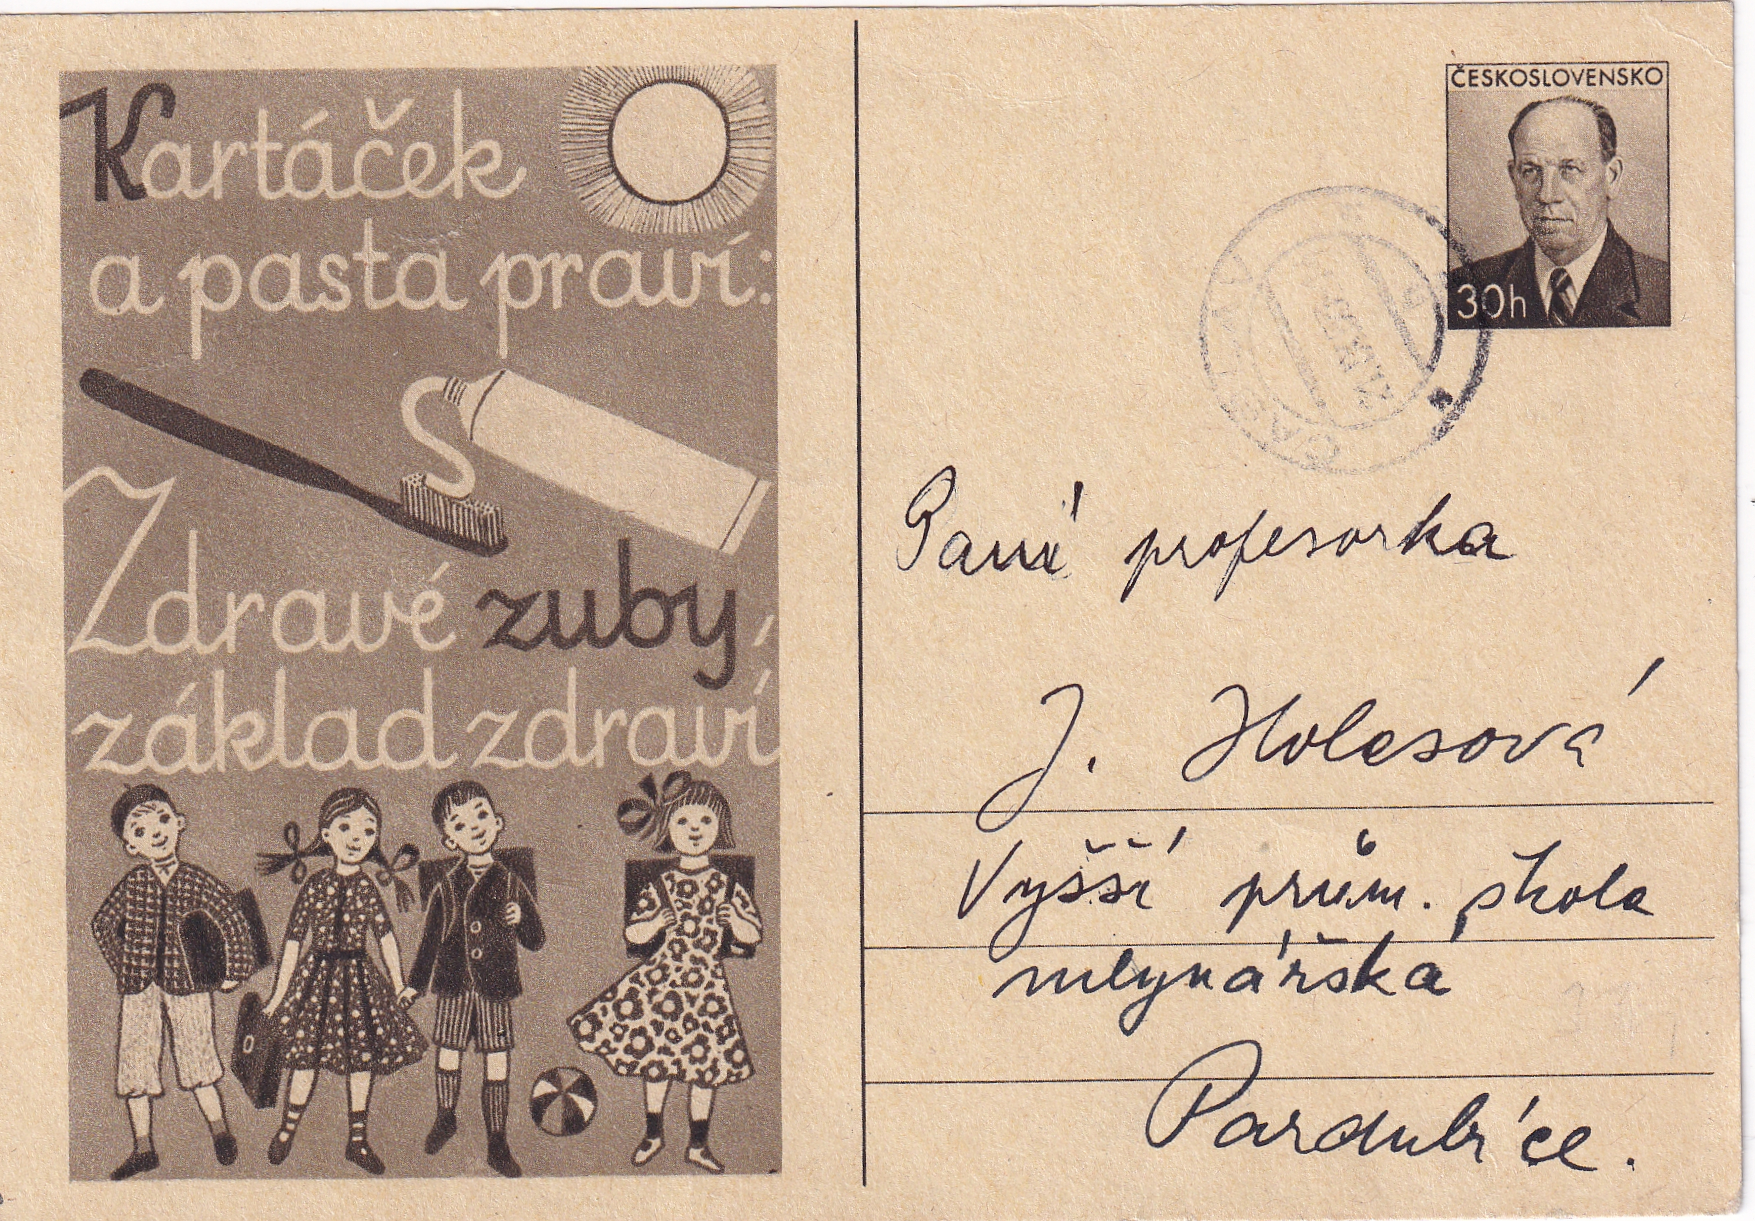 Kartáček
a pasta praví:
Zdravé zuby,
základ zdraví
ČESKOSLOVENSKO
30h
ČÁSLAV
Paní profesorka
J. Holesová
Vyšší prům. škola
mlynářská
Pardubice.